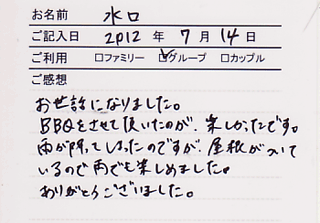 お名前 水口
ご記入日 2012年 7月 14日
ご利用 □ファミリー ☑グループ □カップル
ご感想
お世話になりました。
BBQをさせて頂いたのが、楽しかったです。
雨が降ってしまったのですが、屋根が入いて
いるので雨でも楽しめました。
ありがとうございました。